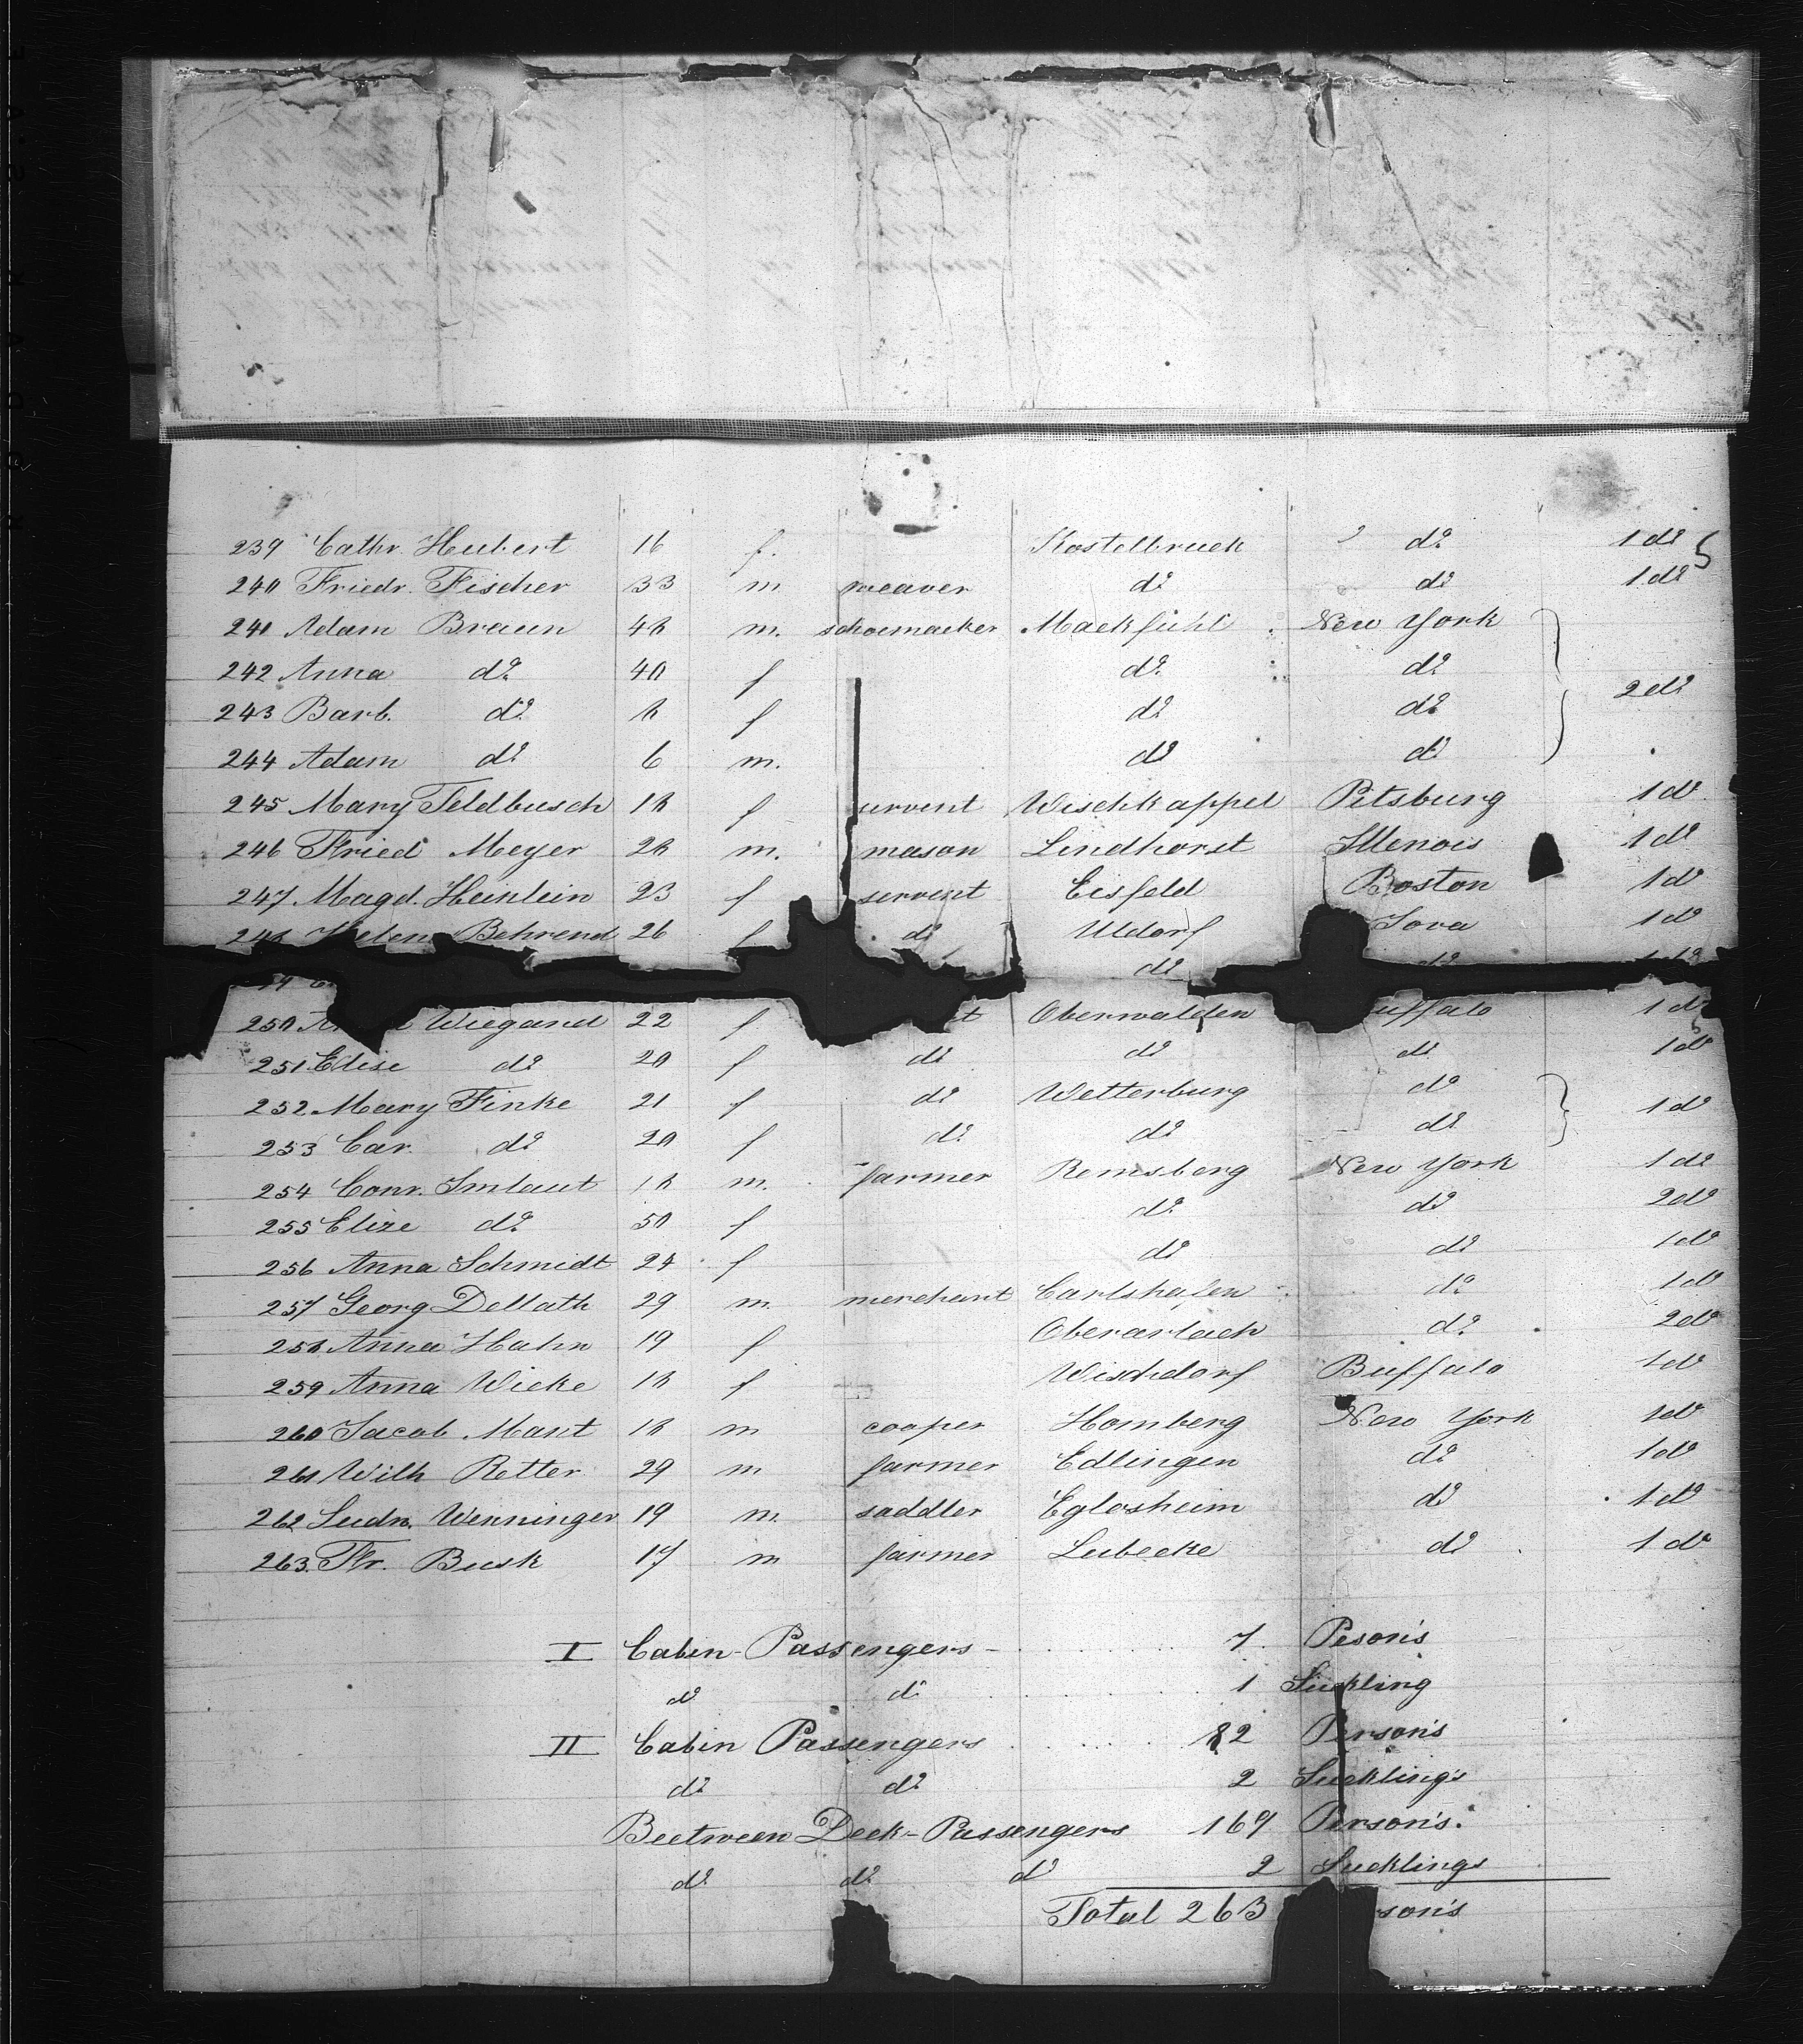 239 Cathr. Hubert 16 f. Kostelbruck do 1 do 5
240 Friedr. Fischer 33 m weaver do do 1 do
241 Adam Braun 48 m. schoemacker Mackfühl New York
242 Anna do 40 f do do
243 Barb. do 8 f do do 2 do
244 Adam do 6 m. do do
245 Mary Feldbusch 18 f servent Wischkappel Pitsburg 1 do
246 Fried Meyer 28 m. mason Lindhorst Illenois 1 do
247. Magd. Heinlein 23 f servent Eisfeld Boston 1 do
248 Helene Behrend 26 f do Udorf Iova 1 do
do do 1 do
250 Wiegand 22 f Oberwalden Buffalo 1 do
251 Elise do 20 f do do do 1 do
252 Mary Finke 21 f do Wetterburg do
253 Car. do 20 f do do do 1 do
254 Conr. Imlaut 18 m. farmer Remsberg New York 1 do
255 Elize do 50 f do do 2 do
256 Anna Schmidt 24 f do do 1 do
257 Georg Dellath 29 m merchant Carlshafen do 1 do
258 Anna Hahn 19 f Oberarlach do 2 do
259 Anna Wicke 18 f Wischdorf Buffalo 1 do
260 Jacob Mant 18 m cooper Homberg New York 1 do
261 Wilh Retter 29 m farmer Edlingen do 1 do
262 Ludn. Wenninger 19 m. saddler Eglosheim do 1 do
263. Fr. Busk 17 m farmer Lubecke do 1 do
I Cabin-Passengers 7. Peson's
do do 1 Suckling
II Cabin Passengers 82 Person's
do do 2 Suckling's
Beetween Deck-Passengers 169 Person's.
do do do 2 Sucklings
Total 263 rson's